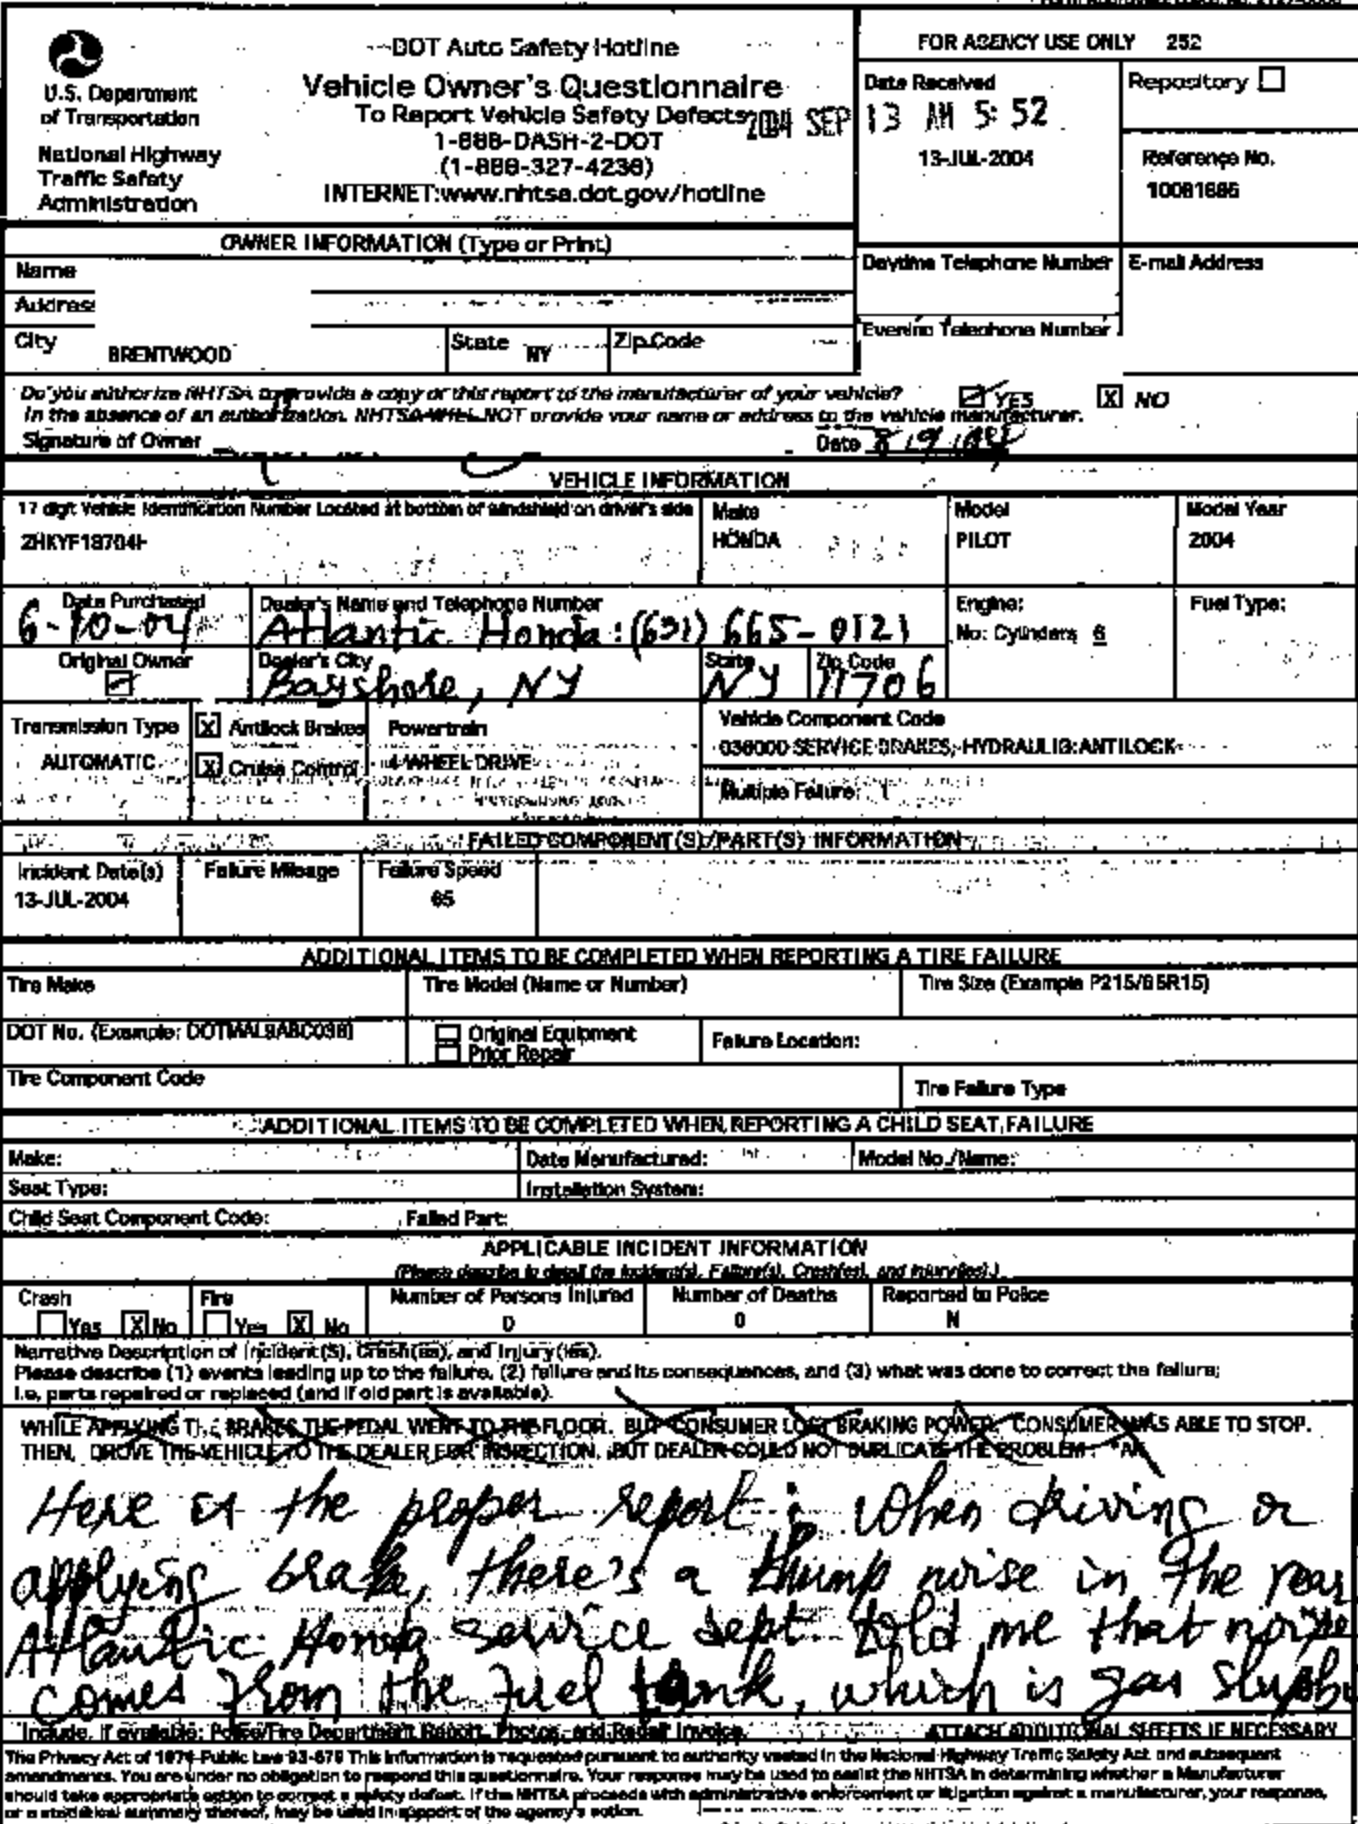 DOT Auto Safety Hotline
Vehicle Owner's Questionnaire
To Report Vehicle Safety Defects
1-888-DASH-2-DOT
(1-888-327-4236)
INTERNET:www.nhtsa.dot.gov/hotline
U.S. Department
of Transportation
National Highway
Traffic Safety
Administration
FOR AGENCY USE ONLY 252
Date Received
2004 SEP 13 AM 5:52
13-JUL-2004
Repository
Reference No.
10081686
OWNER INFORMATION (Type or Print)
Name
Address
City BRENTWOOD State NY Zip Code
Daytime Telephone Number E-mail Address
Evening Telephone Number
Do you authorize NHTSA to provide a copy of this report to the manufacturer of your vehicle? YES X NO
In the absence of an authorization, NHTSA WILL NOT provide your name or address to the vehicle manufacturer.
Signature of Owner Date 8/9/04
VEHICLE INFORMATION
17 digit Vehicle Identification Number Located at bottom of windshield on driver's side Make Model Model Year
2HKYF18704H HONDA PILOT 2004
Date Purchased Dealer's Name and Telephone Number Engine: Fuel Type:
6-10-04 Atlantic Honda: (631) 665-0121 No: Cylinders 6
Original Owner Dealer's City State Zip Code
Bayshore, NY NY 11706
Transmission Type X Antilock Brakes Powertrain Vehicle Component Code
AUTOMATIC X Cruise Control 4-WHEEL DRIVE 036000 SERVICE BRAKES, HYDRAULIC:ANTILOCK
Multiple Failure: 1
FAILED COMPONENT(S)/PART(S) INFORMATION
Incident Date(s) Failure Mileage Failure Speed
13-JUL-2004 65
ADDITIONAL ITEMS TO BE COMPLETED WHEN REPORTING A TIRE FAILURE
Tire Make Tire Model (Name or Number) Tire Size (Example P215/65R15)
DOT No. (Example: DOTMAL9ABC036) Original Equipment Failure Location:
Prior Repair
Tire Component Code Tire Failure Type
ADDITIONAL ITEMS TO BE COMPLETED WHEN REPORTING A CHILD SEAT FAILURE
Make: Date Manufactured: Model No./Name:
Seat Type: Installation System:
Child Seat Component Code: Failed Part:
APPLICABLE INCIDENT INFORMATION
(Please describe in detail the incident(s), Failure(s), Crash(es), and injury(ies).)
Crash Fire Number of Persons Injured Number of Deaths Reported to Police
Yes X No Yes X No 0 0 N
Narrative Description of Incident(S), Crash(es), and Injury(ies).
Please describe (1) events leading up to the failure, (2) failure and its consequences, and (3) what was done to correct the failure;
i.e, parts repaired or replaced (and if old part is available).
WHILE APPLYING THE BRAKES THE PEDAL WENT TO THE FLOOR. BUT CONSUMER LOST BRAKING POWER. CONSUMER WAS ABLE TO STOP.
THEN, DROVE THE VEHICLE TO THE DEALER FOR INSPECTION, BUT DEALER COULD NOT DUPLICATE THE PROBLEM. *AK
Here is the proper report: When driving or
applying brake, there's a thump noise in the rear
Atlantic Honda service dept told me that noise
comes from the fuel tank, which is gas
Include, if available: Police/Fire Department Report, Photos, and Repair Invoice. ATTACH ADDITIONAL SHEETS IF NECESSARY
The Privacy Act of 1974-Public Law 93-579 This information is requested pursuant to authority vested in the National Highway Traffic Safety Act and subsequent
amendments. You are under no obligation to respond this questionnaire. Your response may be used to assist the NHTSA in determining whether a Manufacturer
should take appropriate action to correct a safety defect. If the NHTSA proceeds with administrative enforcement or litigation against a manufacturer, your response,
or a statistical summary thereof, may be used in support of the agency's action.